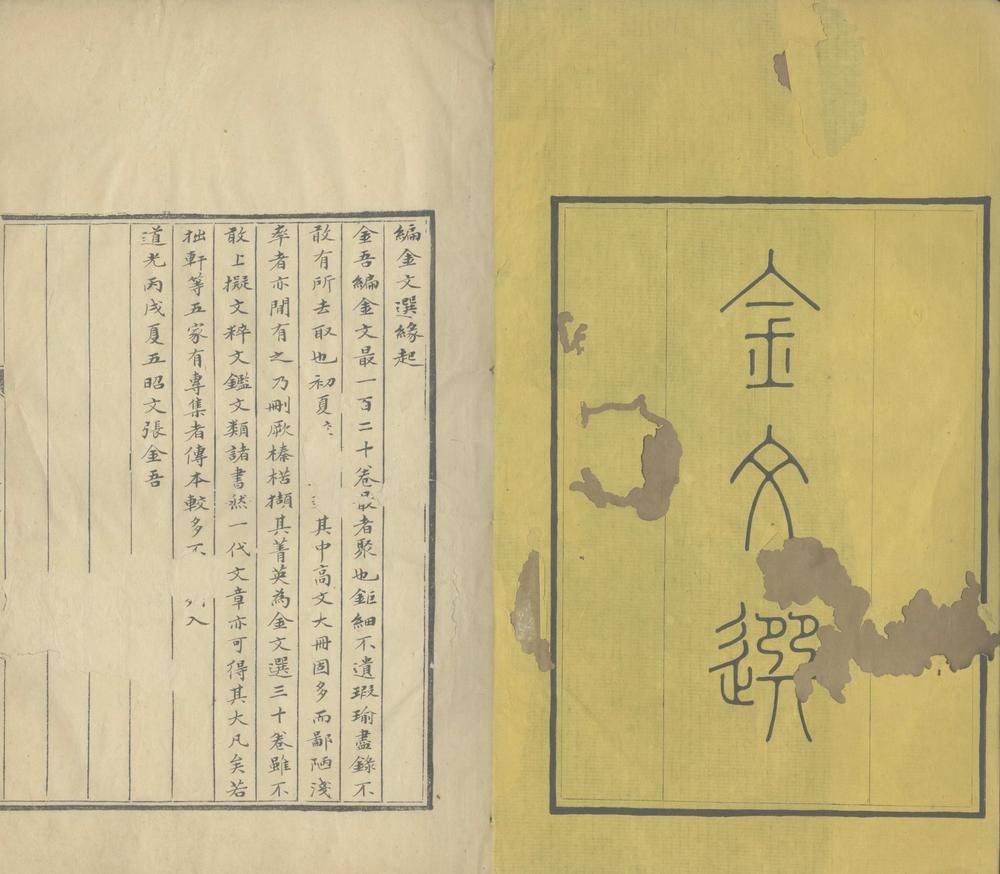 金文選
編金文選緣起
金吾編金文最一百二十卷最者聚也鉅細不遺瑕瑜盡錄不
敢有所去取也初夏其中高文大冊固多而鄙陋淺
率者亦閒有之乃刪厥榛楛擷其菁英為金文選三十卷雖不
敢上擬文粹文鑑文類諸書然一代文章亦可得其大凡矣若
拙軒等五家有專集者傳本較多入
道光丙戌夏五昭文張金吾